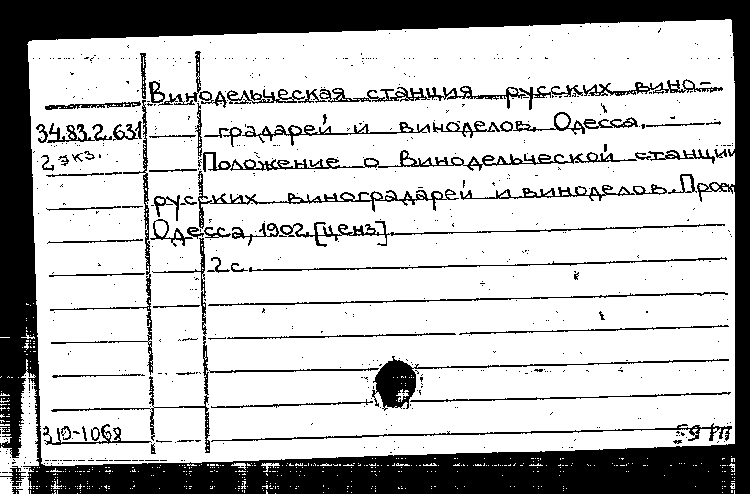 Винодельческая станция русских вино-
34.83.2.631 градарей и виноделов. Одесса.
2 экз. Положение о Винодельческой станции
русских виноградарей и виноделов. Проек
Одесса, 1902. [ценз].
2 с.
310-1068
59 РП